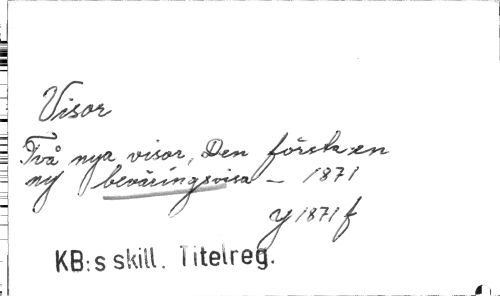 Visor
Två nya visor, Den första en
ny beväringsvisa – 1871
y 1871 f
KB:s skill. Titelreg.